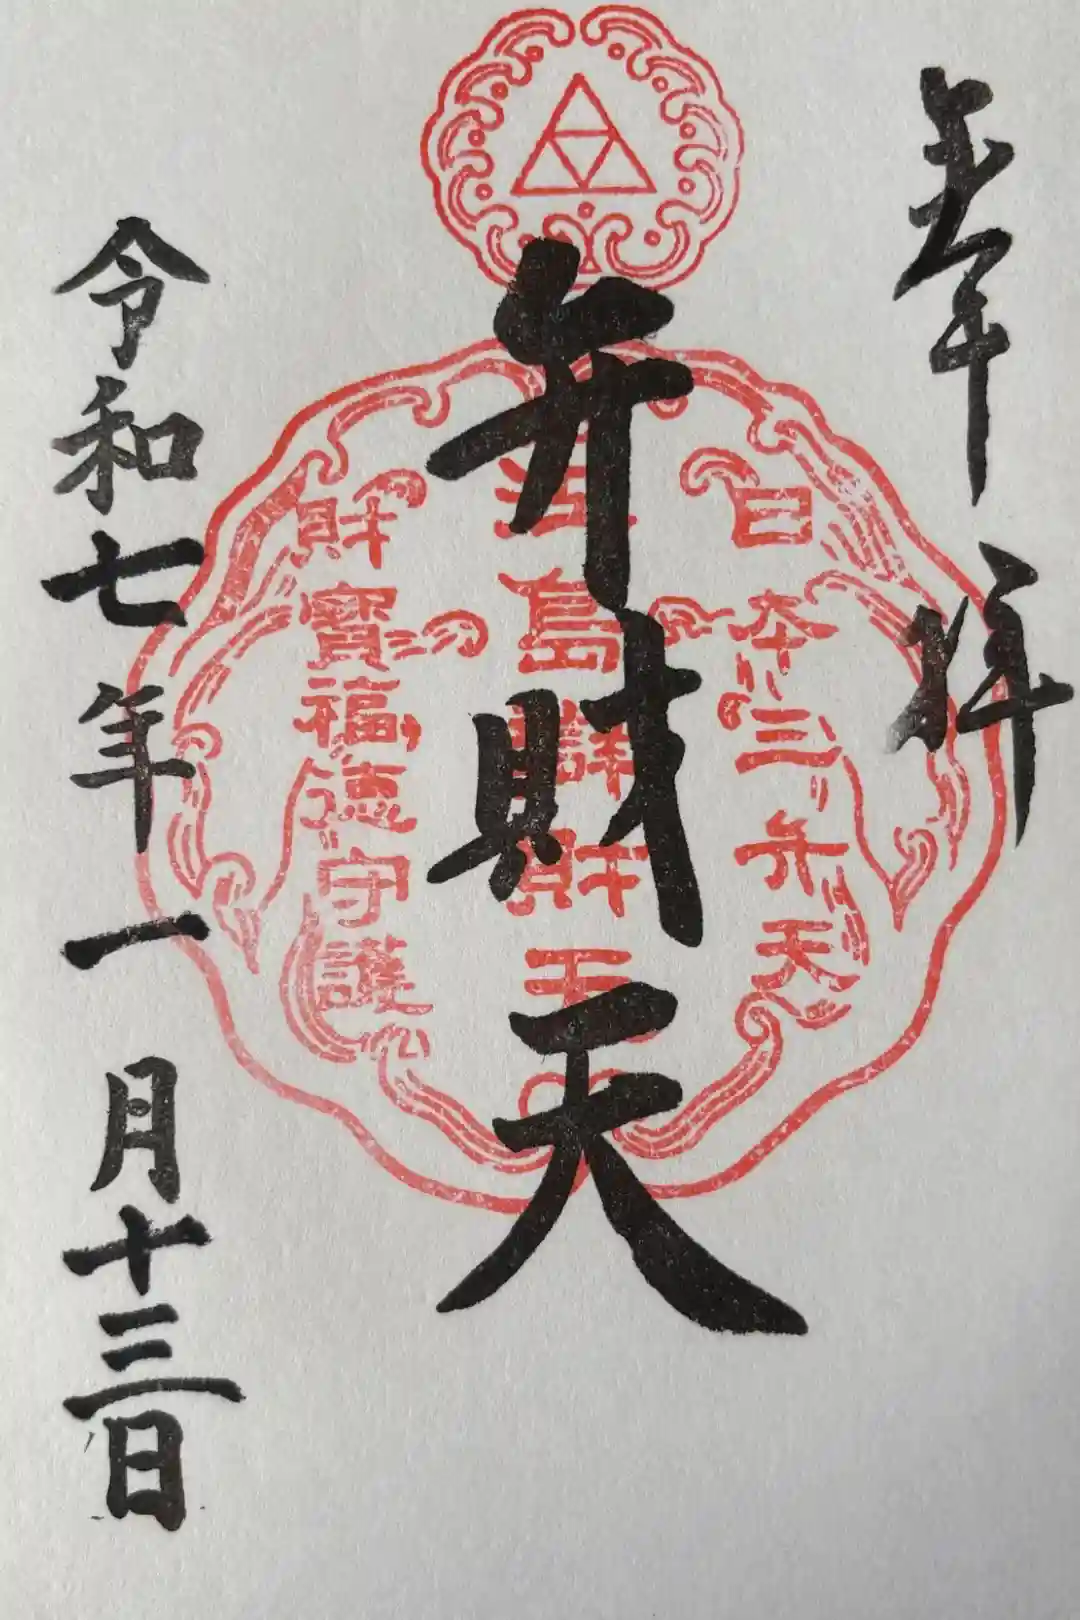 奉拝
日本三弁天
江島辯財天
財寶福徳守護
弁財天
令和七年一月十三日